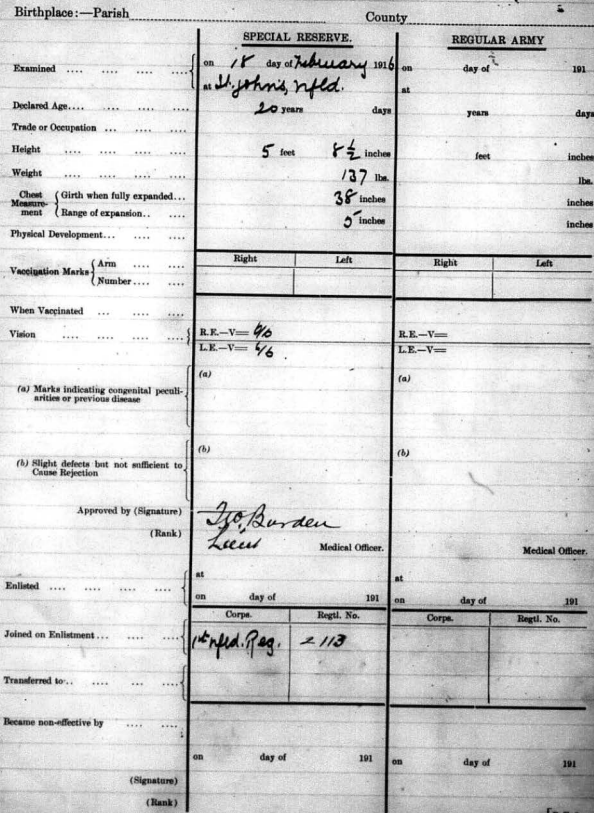 Birthplace:—Parish County
SPECIAL RESERVE. REGULAR ARMY
Examined .... .... .... .... on 18 day of February 1916 on day of 191
at St. John's, Nfld. at
Declared Age.... .... .... .... 20 years days years days
Trade or Occupation ... .... ....
Height .... .... .... .... 5 feet 8 1/2 inches feet inches
Weight .... .... .... .... 137 lbs. lbs.
Chest Measure-ment { Girth when fully expanded... 38 inches inches
Range of expansion.. .... 5 inches inches
Physical Development... .... ....
Right Left Right Left
Vaccination Marks { Arm .... ....
Number.... ....
When Vaccinated ... .... ....
Vision .... .... .... .... R.E.—V= 6/6 R.E.—V=
L.E.—V= 6/6 L.E.—V=
(a) Marks indicating congenital peculi- (a) (a)
arities or previous disease
(b) Slight defects but not sufficient to (b) (b)
Cause Rejection
Approved by (Signature) Burden
(Rank) Medical Officer. Medical Officer.
Enlisted .... .... .... .... at at
on day of 191 on day of 191
Corps. Regtl. No. Corps. Regtl. No.
Joined on Enlistment... .... .... 1st Nfld. Reg. 2113
Transferred to.. .... .... ....
Became non-effective by .... ....
on day of 191 on day of 191
(Signature)
(Rank)